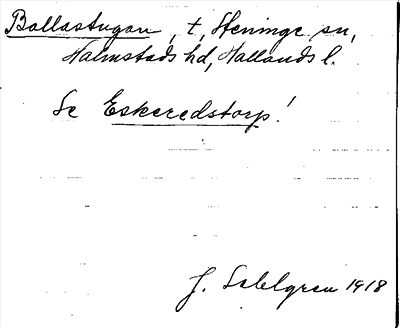 Ballastugan, t, Steninge sn,
Halmstads hd, Hallands l.
Se Eskeredstorp!
J. Sahlgren 1918